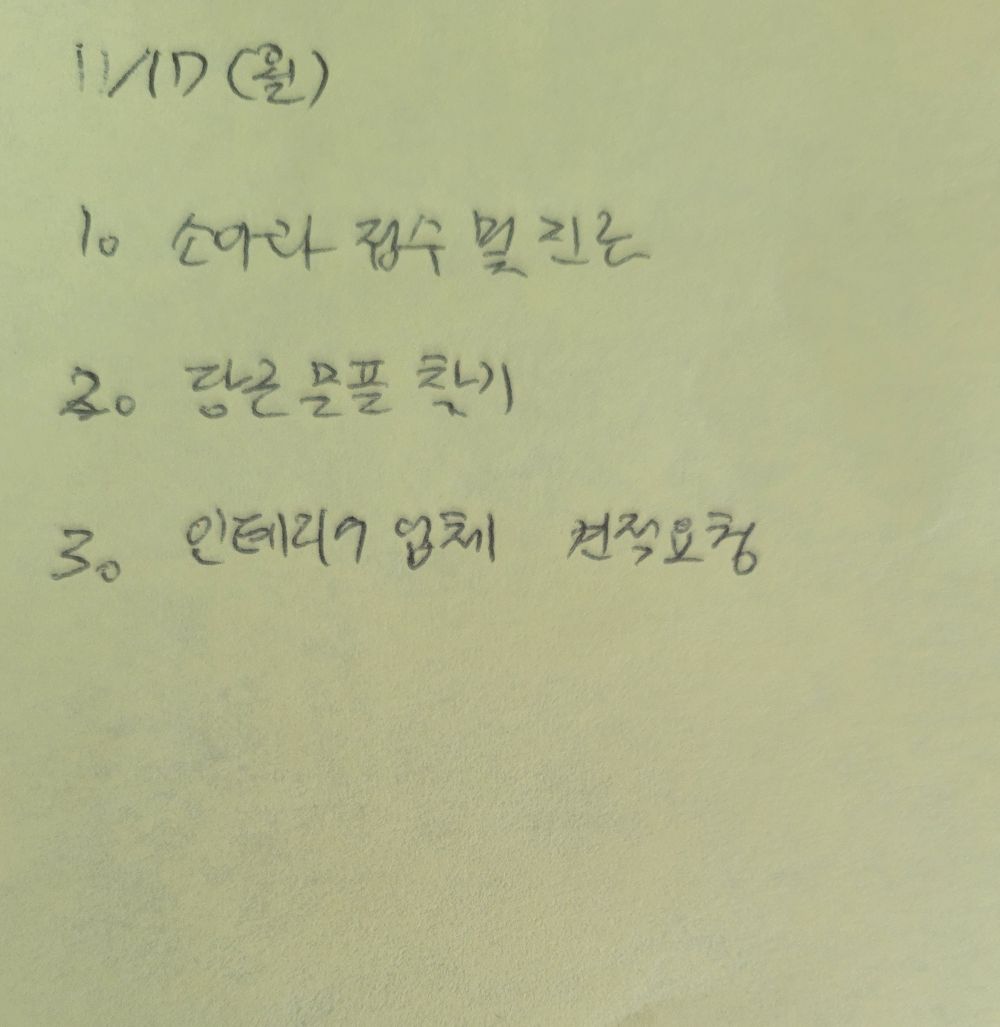 11/17 (월)
1. 소아과 접수 및 진료
2. 당근 물품 찾기
3. 인테리어 업체 견적요청